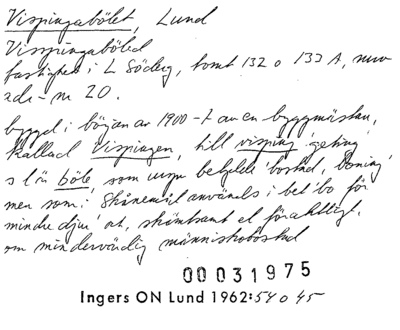 Vispingabölet, Lund
Vispingaböled
fastighet i L Söderg, tomt 132 o 133 A, nuv
adr-nr 20.
byggd i början av 1900-t av en byggmästare,
kallad Vispingen, till visping 'geting'
s l ö böle, som urspr betydde 'bostad, boning'
men som i Skånemål används i bet 'bo för
mindre djur' o, skämtsamt el föraktligt,
om mindervärdig människobostad
00031975
Ingers ON Lund 1962:54 o 45